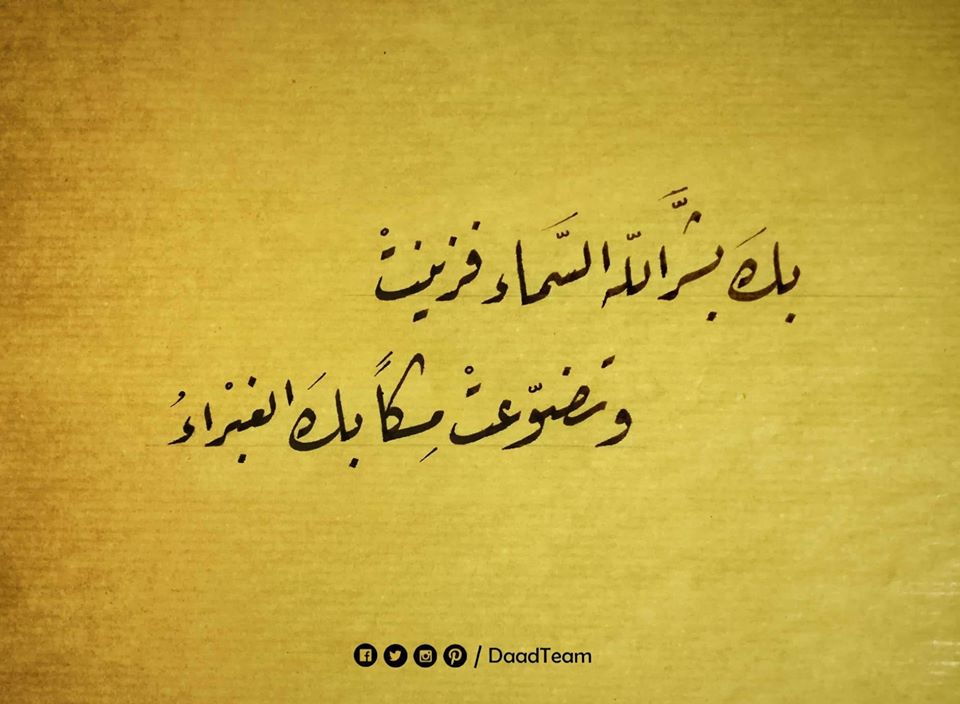 بكَ بشَّرَ اللّه السَّماء فزينتْ
وتضوّعتْ مِسكاً بكَ الغبْراءُ
/ DaadTeam